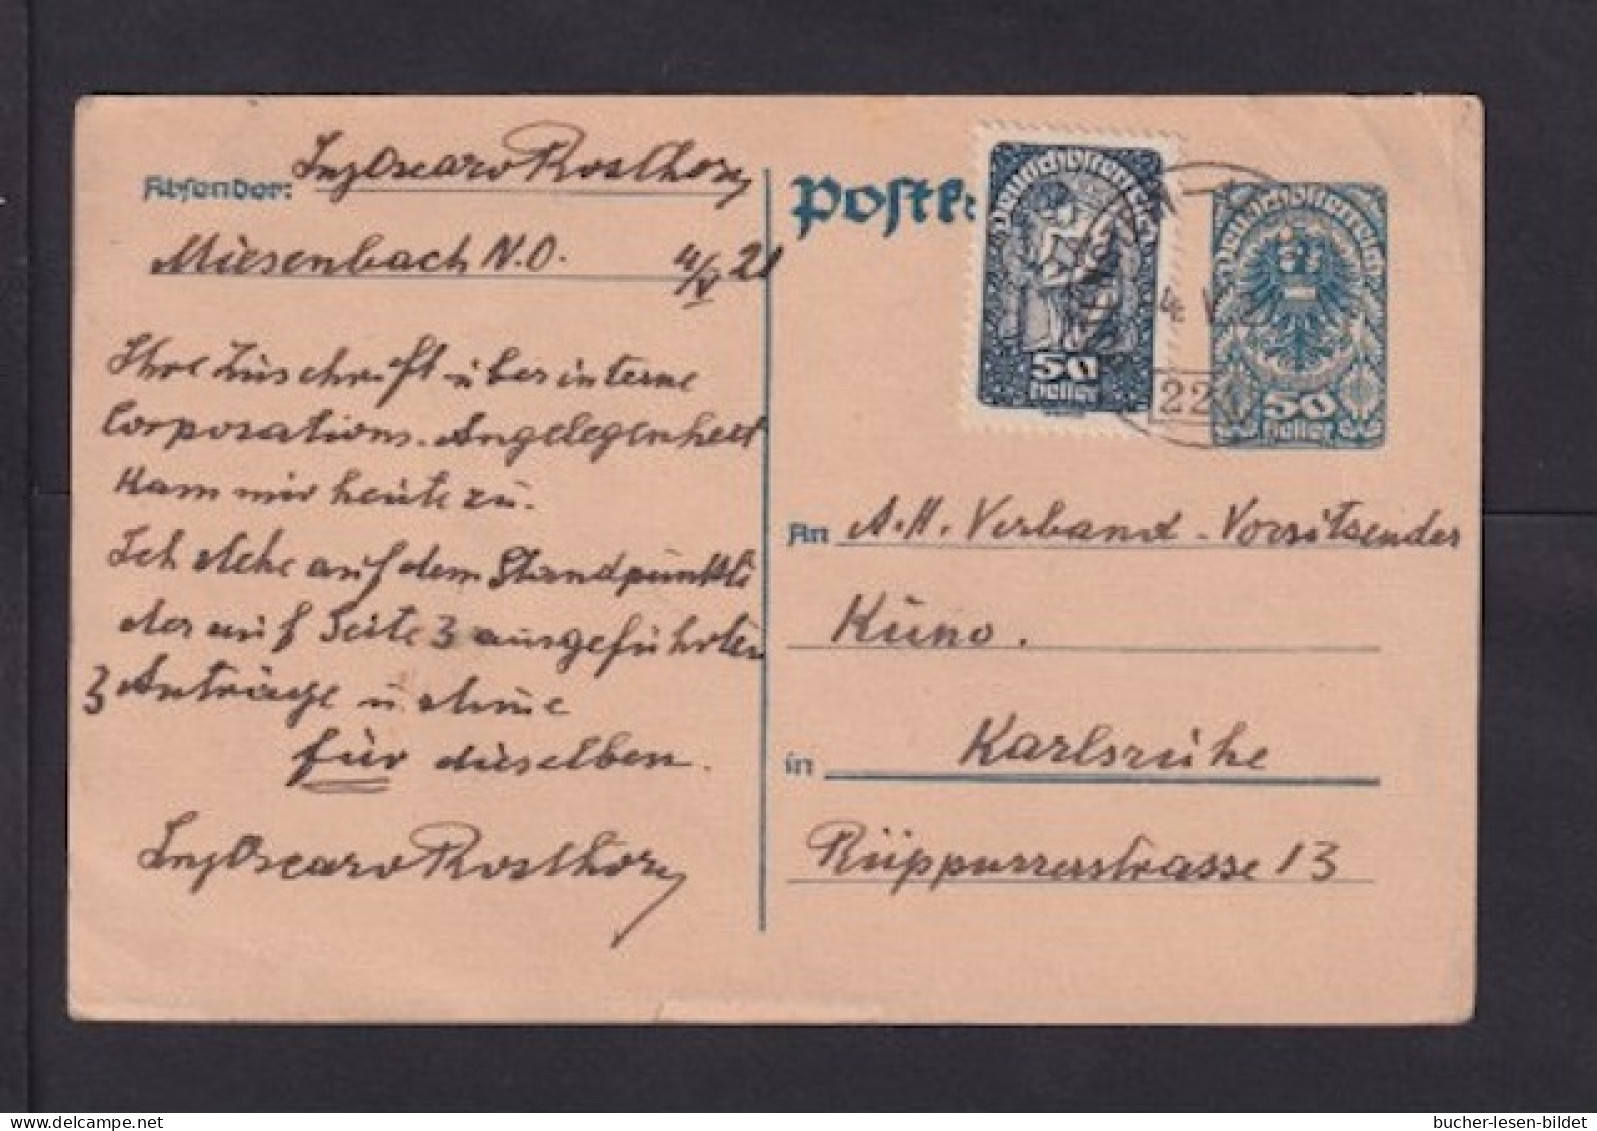 Absender: Ing Oscar v Rosthorn
Miesenbach N.Ö. 4/V 21
Ihre Zuschrift über interne
Corporations-Angelegenheit
kam mir heute zu.
Ich stehe auf dem Standpunkte
der auf Seite 3 ausgeführten
3 Anträge u stimme
für dieselben.
Ing Oscar v Rosthorn
Postk:
Deutschösterreich
50
Heller
4. V. 2
22
Deutschösterreich
50
Heller
An A.H. Verband-Vorsitzender
Kuno.
in Karlsruhe
Rüppurrerstrasse 13
bucher-lesen-bildet